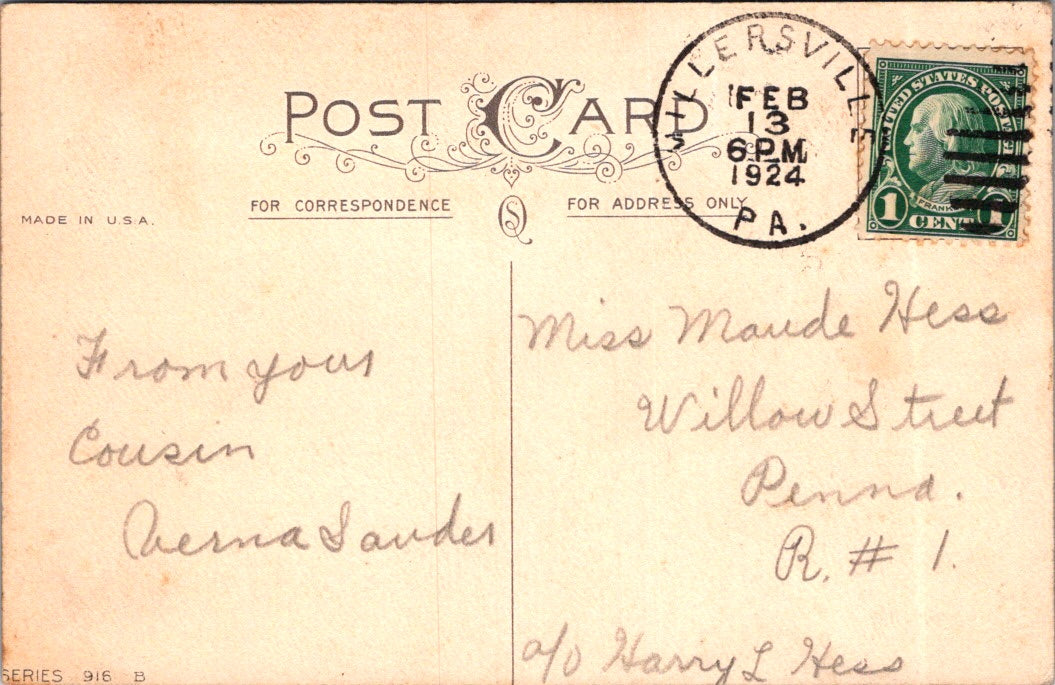 POST CARD
MILLERSVILLE
FEB
13
6 PM
1924
PA.
UNITED STATES POSTAGE
FRANKLIN
1 CENT 1
FOR CORRESPONDENCE
FOR ADDRESS ONLY
MADE IN U.S.A.
From your
Cousin
Verna Sauder
Miss Maude Hess
Willow Street
Penna.
R. # 1.
c/o Harry L Hess
SERIES 916 B